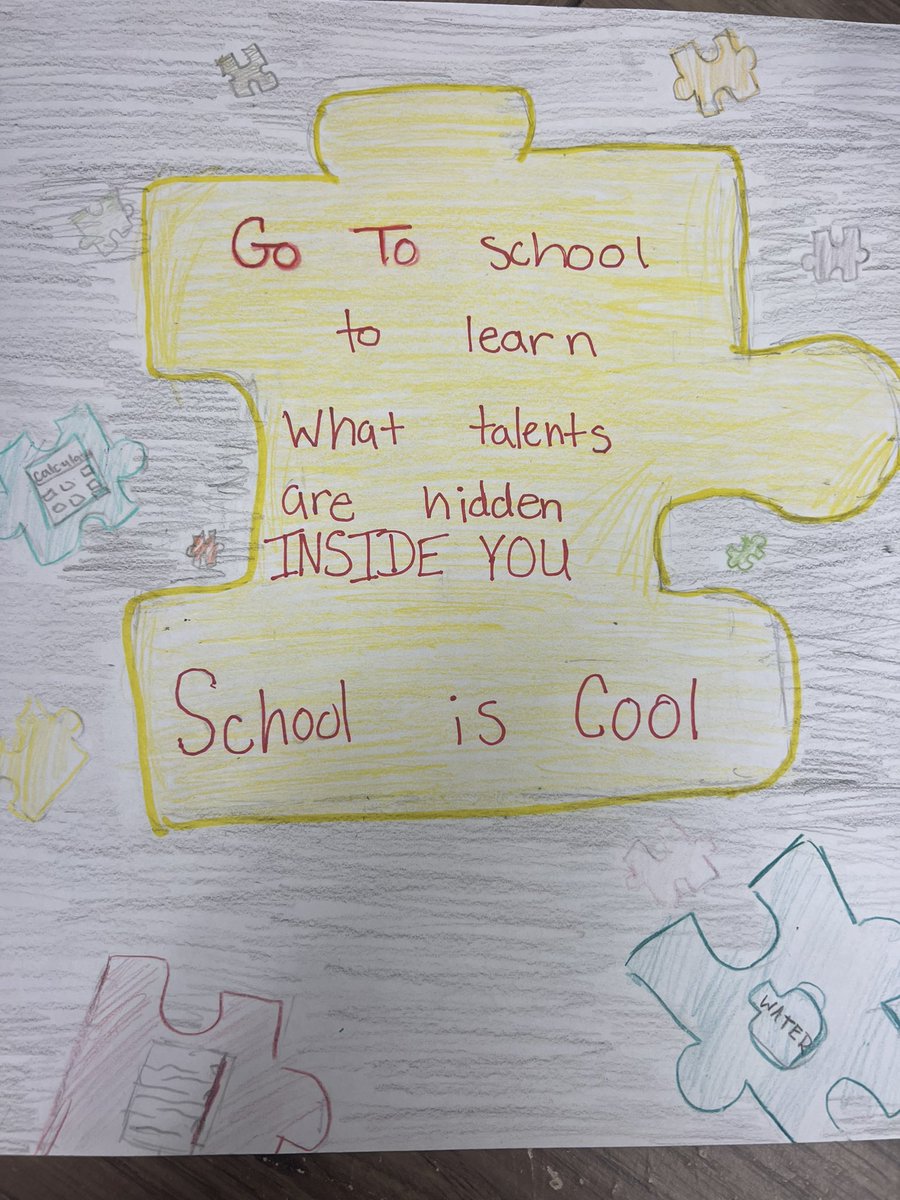 Go To school
to learn
What talents
are hidden
INSIDE YOU
School is Cool
WATER